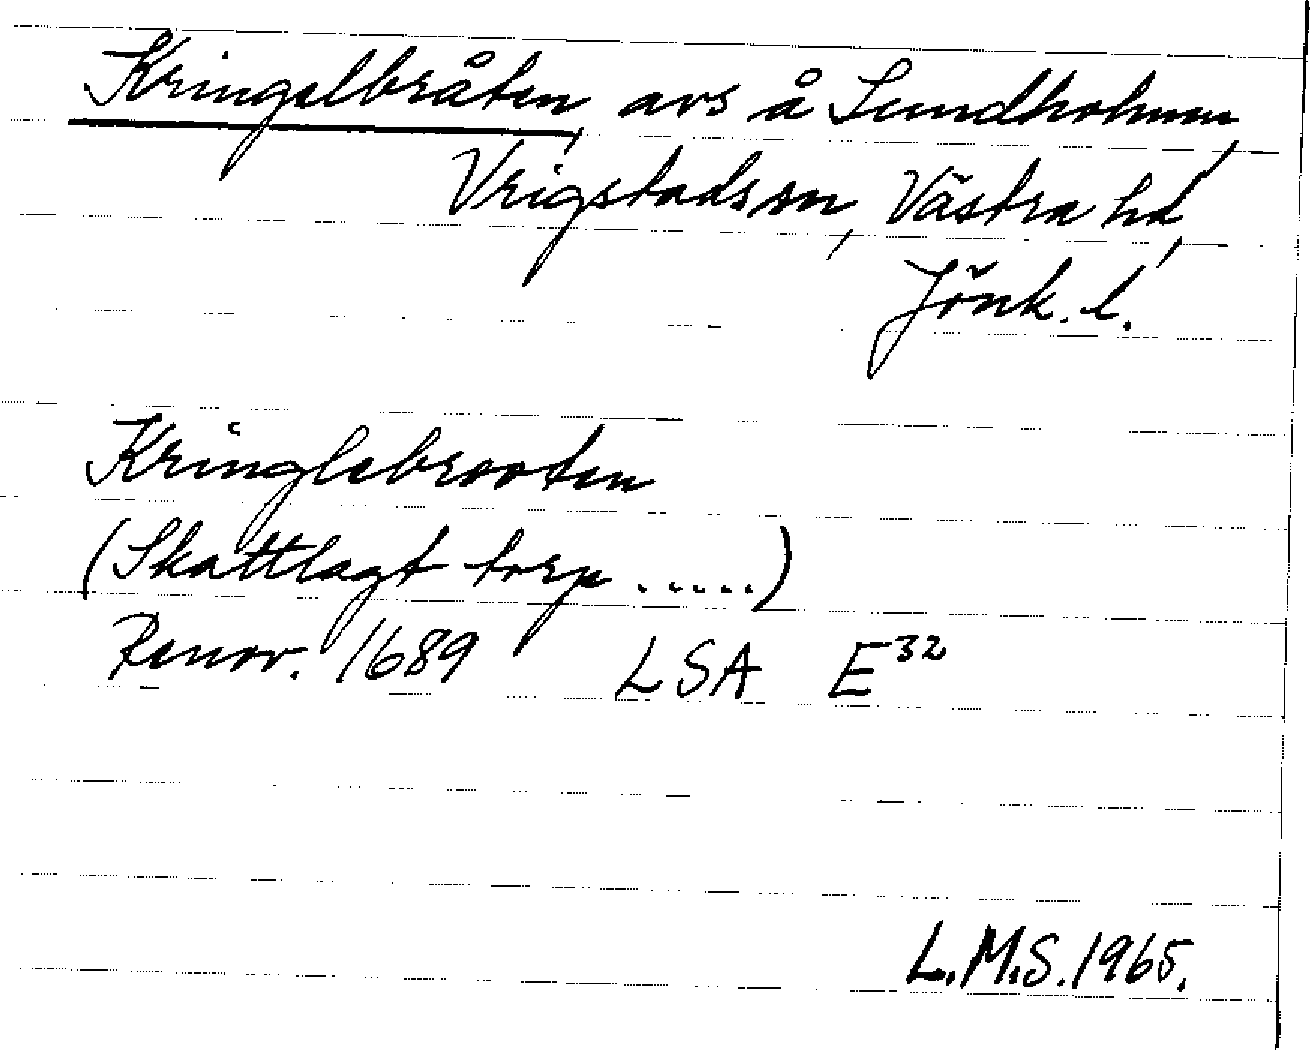 Kringelbråten, avs å Sundholmen,
Vrigstads sn, Västra hd,
Jönk. l.
Kringlebrooten
(Skattlagt torp .....)
Renov. 1689 LSA E32
L.M.S. 1965.